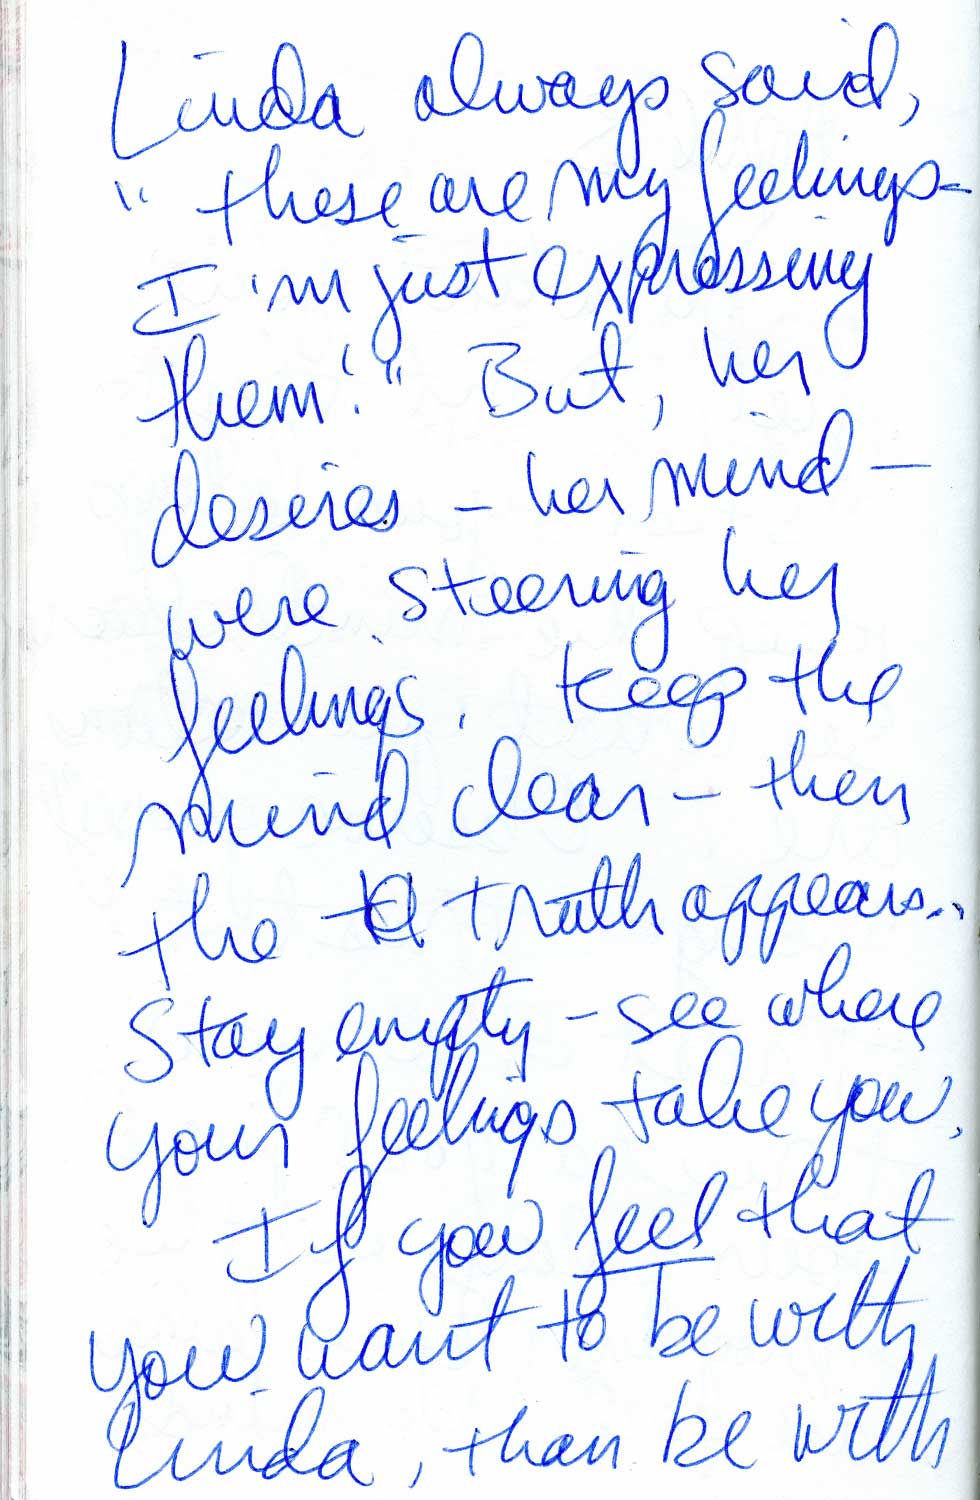 Linda always said,
"these are my feelings-
I'm just expressing
them!" But, her
desires - her mind -
were steering her
feelings. Keep the
mind clear - then
the truth appears..
Stay empty - see where
your feelings take you.
If you feel that
you want to be with
Linda, than be with